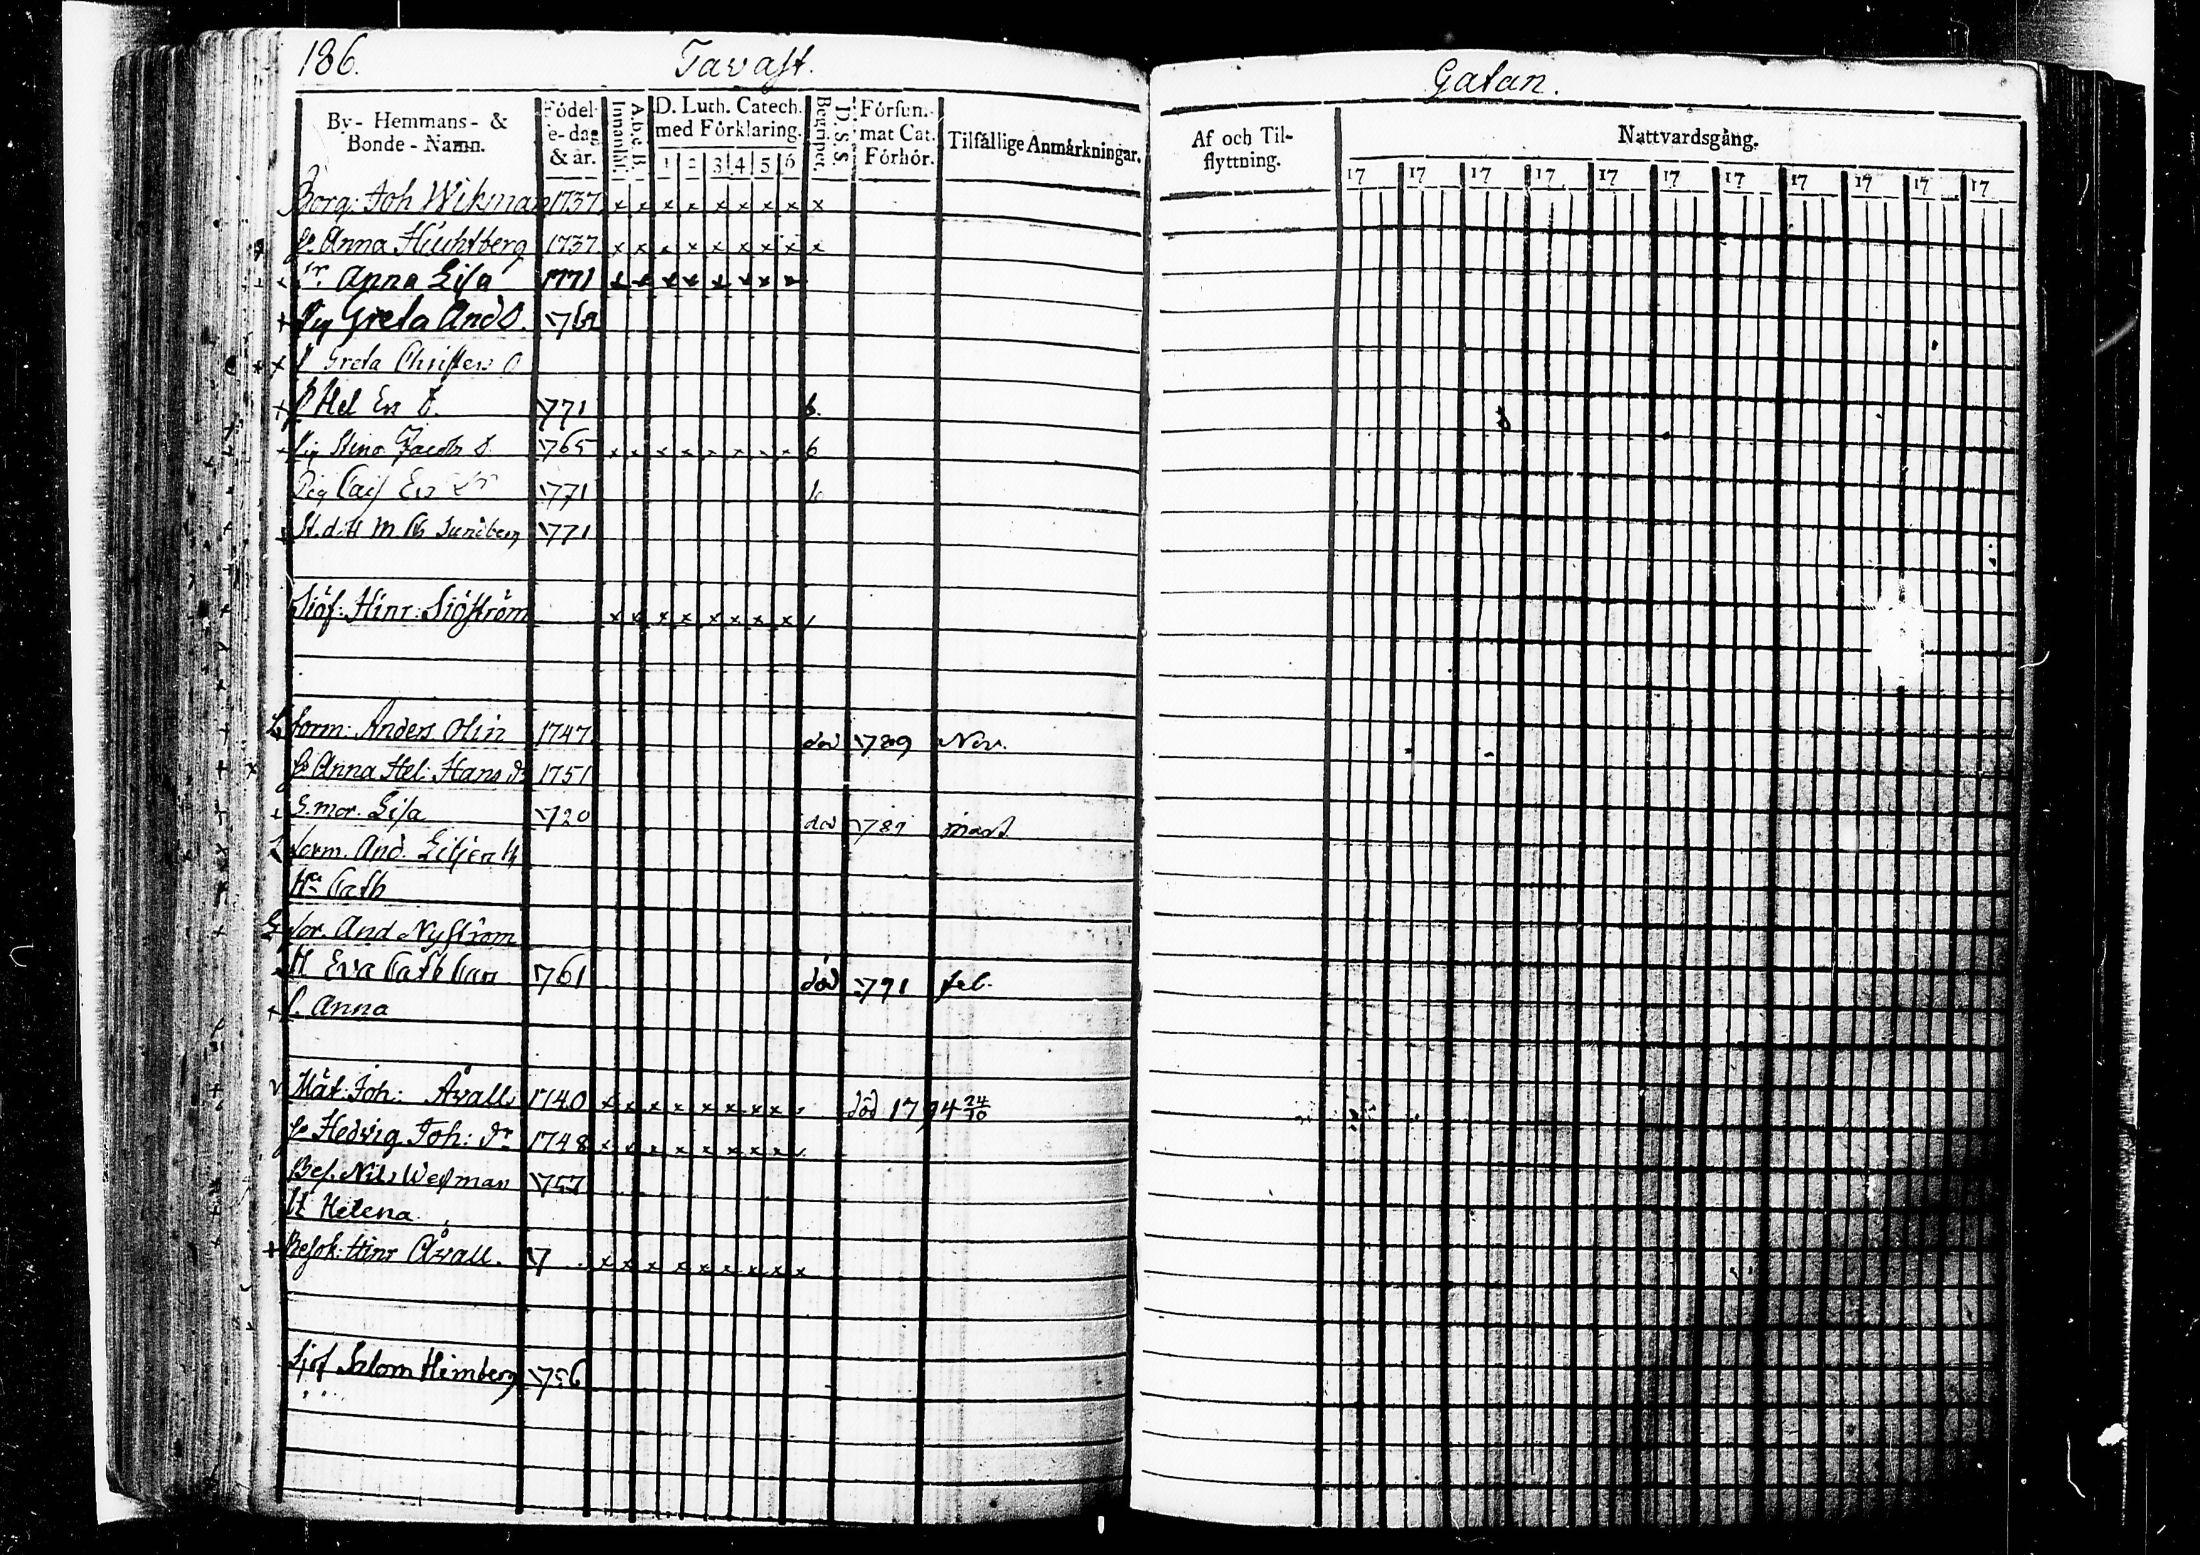 186.
Tavast.
Gatan.
By- Hemmans- & Bonde-Namn.
Födel-e-dag & år.
Innanläs.
A.b.c.B.
D. Luth. Catech. med Förklaring.
1 2 3 4 5 6
Begripet.
D. S. S.
Försum-mat Cat. Förhör.
Tilfällige Anmärkningar.
Af och Til-flyttning.
Nattvardsgång.
17 17 17 17 17 17 17 17 17 17 17
Borg: Joh Wikman 1737 x x x x x x x x x
Anna 1737 x x x x x x x x x
Anna Lisa 1771 x x x x x x x x
Pig Greta And D.
Greta
Hel Er D. 1771 b.
Pig Stina Jacobs D. 1765 x x x x x x x x b
Pig Er 1771
Sundberg 1771
Siöf: Hinr: Siöström x x x x x x x x
form: Anders Olin 1747 död 1789 Nov.
Anna Hel: Hans dr 1751
S. mor. Lisa 1720 död 178 mart.
form. And.
Hu Cath
for. And Nyström
H Eva Cath 1761 död 1791 feb.
Anna
Mät. Joh: Åvall 1740 x x x x x x x x död 1794 24/10
Hedvig Joh: dr 1748 x x x x x x x x
Bes. Nils Wesman 1757
H Helena
Besök: Hinr Åvall. 17 x x x x x x x x x
Sjöf Salom Heimberg 1756